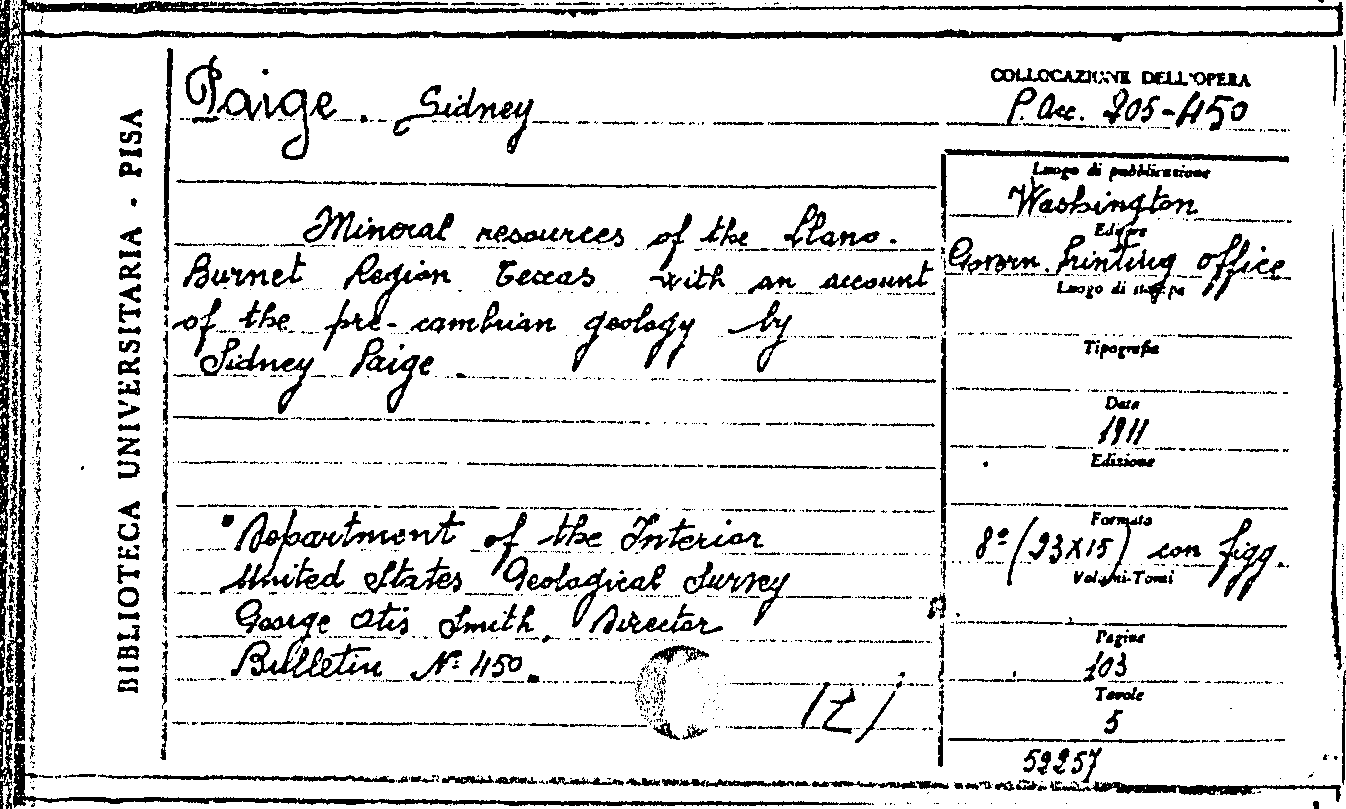 BIBLIOTECA UNIVERSITARIA - PISA
Paige. Sidney
COLLOCAZIONE DELL'OPERA
P. Acc. 205-450
Mineral resources of the Llano.
Burnet Region Texas with an account
of the pre-cambrian geology by
Sidney Paige.
"Department of the Interior
United States Geological Survey
George Otis Smith, Director
Bulletin Nº 450.
Luogo di pubblicazione
Washington
Editore
Govern. Printing office
Luogo di stampa
Tipografia
Data
1911
Edizione
Formato
8º (23X15) con figg.
Volumi-Tomi
Pagine
103
Tavole
5
52257